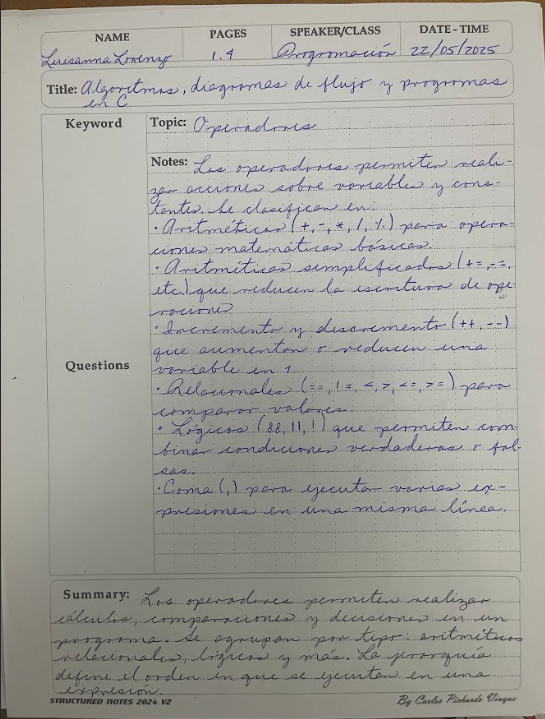 NAME PAGES SPEAKER/CLASS DATE - TIME
Luisanna Lorenzo 1.4 Programación 22/05/2025
Title: Algoritmos, diagramas de flujo y programas
en C
Keyword
Topic: Operadores
Notes: Los operadores permiten reali-
zar acciones sobre variables y cons-
tantes. Se clasifican en:
· Aritméticos (+, -, *, /, %) para opera-
ciones matemáticas básicas.
· Aritméticos simplificados (+=, -=,
etc) que reducen la escritura de ope-
raciones
· Incremento y decremento (++, --)
que aumentan o reducen una
variable en 1
Questions
· Relacionales (==, !=, <, >, <=, >=) para
comparar valores.
· Lógicos (&&, ||, !) que permiten com-
binar condiciones verdaderas o fal-
sas.
· Coma (,) para ejecutar varias ex-
presiones en una misma línea.
Summary: Los operadores permiten realizar
cálculos, comparaciones y decisiones en un
programa. Se agrupan por tipo: aritméticos
relacionales, lógicos y más. La jerarquía
define el orden en que se ejecutan en una
expresión.
STRUCTURED NOTES 2024 V2 By Carlos Pichardo Viuque